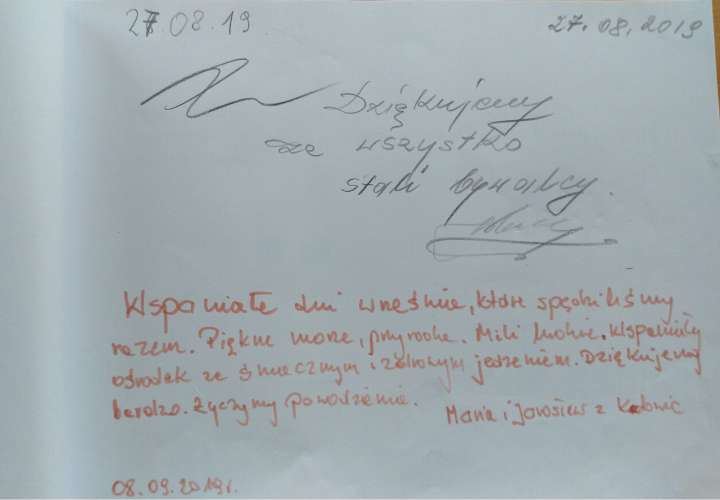 27.08.19
27.08.2019
Dziękujemy
za wszystko
stali bywalcy.
Wspaniałe dni wrześnie, które spędziliśmy
razem. Piękne morze, przyroda. Mili ludzie. Wspaniały
ośrodek ze smacznym i zdrowym jedzeniem. Dziękujemy
bardzo. Życzymy powodzenia.
Maria i Jarosław z Katowic
08.09.2019r.